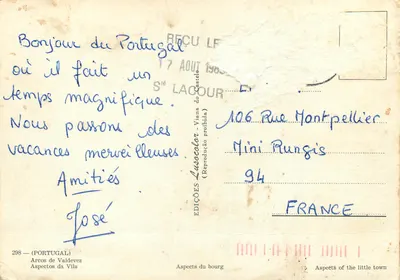 Bonjour du Portugal
où il fait un
temps magnifique.
Nous passons des
vacances merveilleuses.
Amitiés
José
298 — (PORTUGAL)
Arcos de Valdevez
Aspectos da Vila
REÇU LE
17 AOUT
Sté LACOUR
EDIÇÕES Lusocolor
(Reprodução proibida)
106 Rue Montpellier
Mini Rungis
94
FRANCE
Aspects du bourg
Aspects of the little town